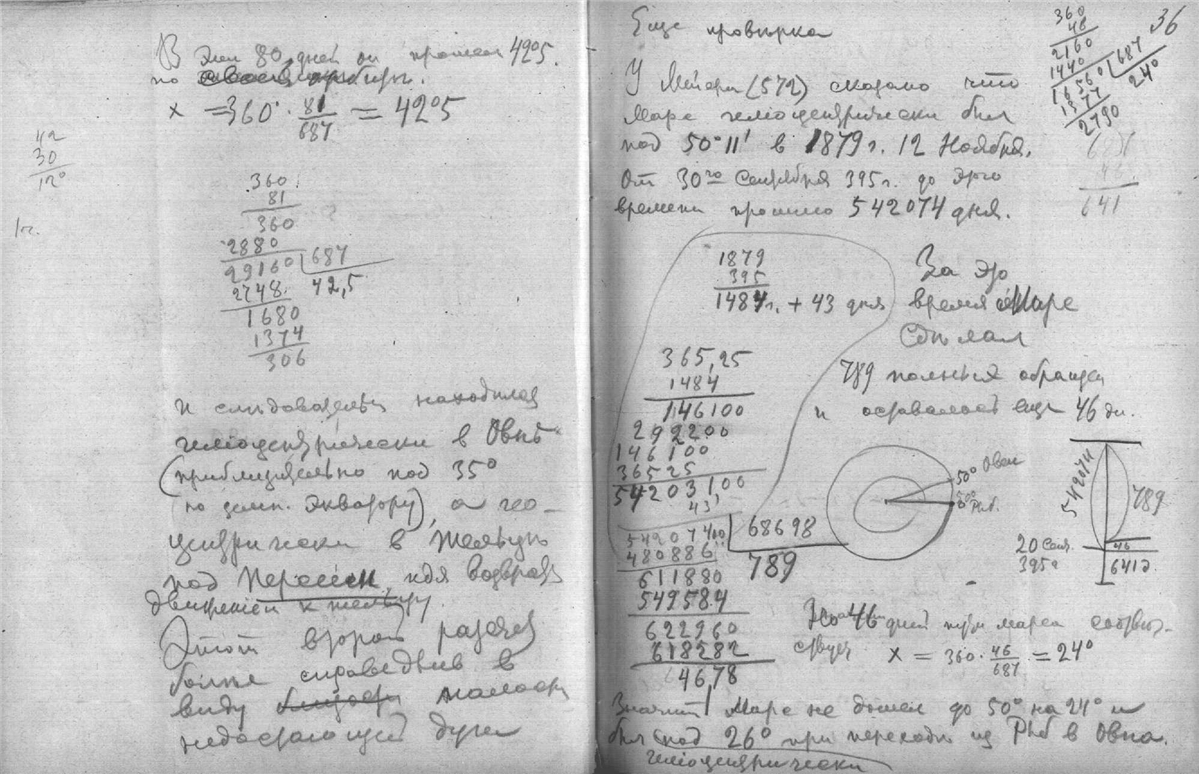 В эти 80 дней он прошел 42°5
по
x = 360 · 81/687 = 42°5
42
30
12°
1 г.
360
81
360
2880
29160 | 687
2748 | 42,5
1680
1374
306
и следовательно находился
гелиоцентрически в Овне
(приблизительно под 35°
по экватору), а гео-
центрически в Тельце
под Персеем, идя возврат
движением к Тельцу.
Этот второй разсчет
более справедлив в
виду малости
недостающей дуги
36
Еще провырка
360
48
2160
1440
16560 | 687
1374 | 24°
2790
46
641
У (572) сказано что
Марс гелиоцентрически был
под 50°11' в 1879 г. 12 Ноября.
От 30го Сентября 395 г. до этого
времени прошло 542074 дня.
1879
395
1484 г. + 43 дня
За это
время Марс
сделал
789 полных обращен
и оставалось еще 46 дн.
365,25
1484
146100
292200
146100
36525
542031,00
43,
54207400 | 68698
480886 | 789
611880
549584
622960
618282
4678
50° Овен
0° Рыб.
542074
789
20 Сент.
395 г
46
641 д
Но 46 дней пути марса соответ-
ствует x = 360 · 46/687 = 24°
Значит Марс не дошел до 50° на 24° и
был под 26° при переходе из Рыб в Овна.
гелиоцентрически